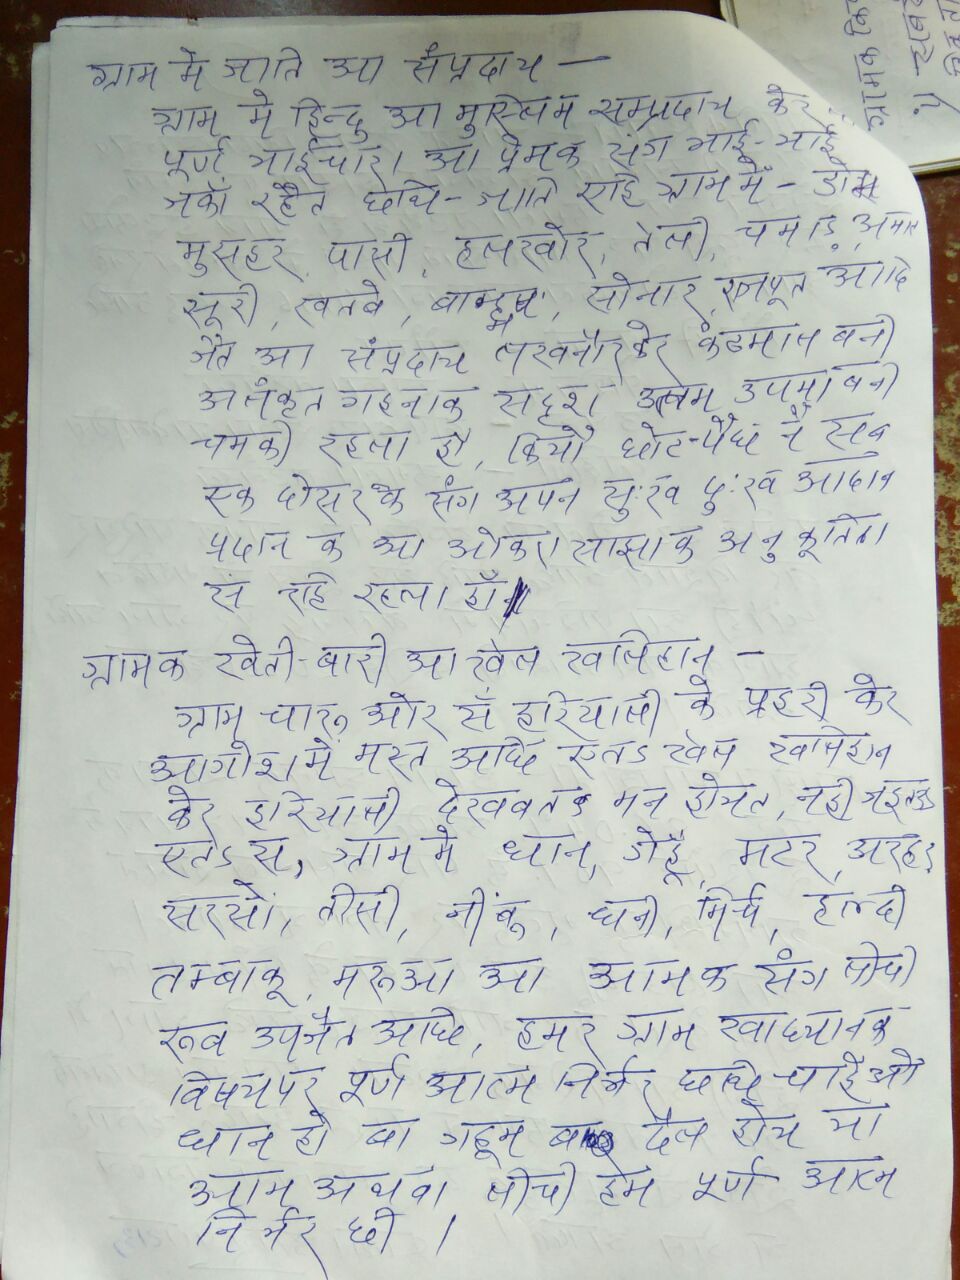 ग्राम मे जाति आ संप्रदाय —
ग्राम मे हिन्दु आ मुस्लिम सम्प्रदाय केर
पूर्ण भाईचारा आ प्रेमक संग भाई-भाई
जकाँ रहैत छथि - जाति एहि ग्राम में - डोम
मुसहर, पासी, हलखोर, तेली, चमाड़, अमात
सूरी, खतवे, बाम्हण, सोनार, राजपूत आदि
जैत आ संप्रदाय लखनौर केर कंठमाल बनी
अलंकृत गहनाक सदृश उत्तम उपमा बनी
चमकी रहला है, कियौ छोट-पैघ नै सब
एक दोसर के संग अपन सुःख दुःख आदान
प्रदान क आ ओकरा साझाक अनुकूलिता
सं रहि रहला हाँ।
ग्रामक खेती-बारी आ खेत खलिहान —
ग्राम चारू ओर सँ हरियाली के प्रहरी केर
आगोश में मस्त अछि एतऽ खेत खलिहान
केर हरियाली देखबतक मन होयत, नही जइतऽ
एतऽ स, ग्राम मे धान, गेहूँ, मटर, अरहर
सरसों, तीसी, नींबू, धनी, मिर्च, हल्दी
तम्बाकू, मरूआ आ आमक संग लीची
खूब उपजैत अछि, हमर ग्राम खाद्यानक
विषयपर पूर्ण आत्म निर्भर छथि चाहे ओ
धान हो बा गहूम दैल होय या
आम अथवा लीची हम पूर्ण आत्म
निर्भर छी ।
ग्रामक